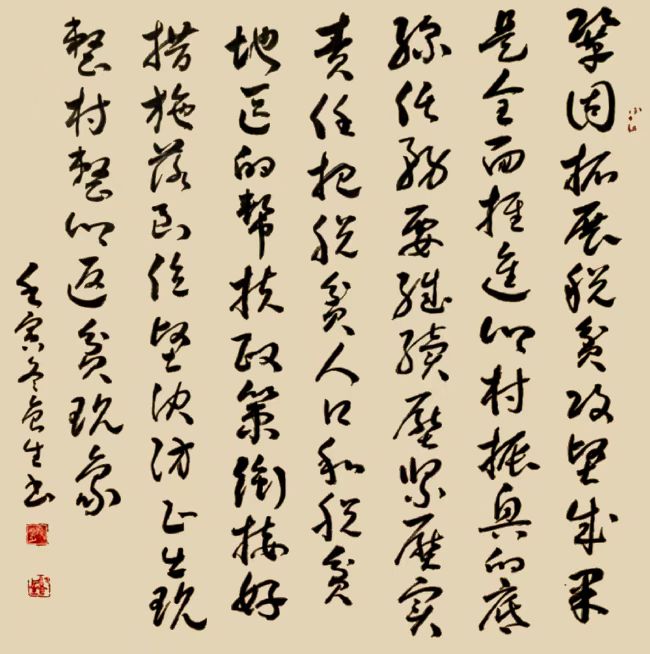 巩固拓展脱贫攻坚成果
是全面推进乡村振兴的底
线任务要继续压紧压实
责任把脱贫人口和脱贫
地区的帮扶政策衔接好
措施落到位坚决防止出现
整村整乡返贫现象
壬寅冬良生书